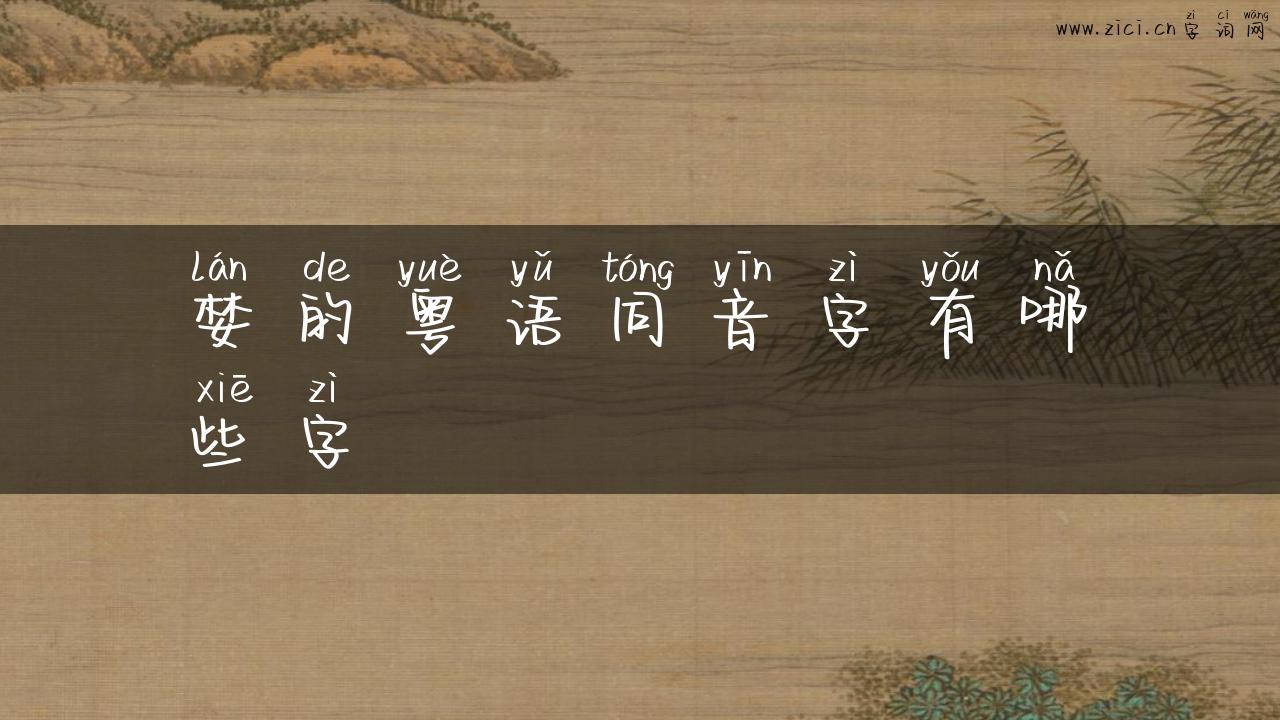 www.zici.cn zì cí wǎng
字词网
lán de yuè yǔ tóng yīn zì yǒu nǎ
婪的粤语同音字有哪
xiē zì
些字